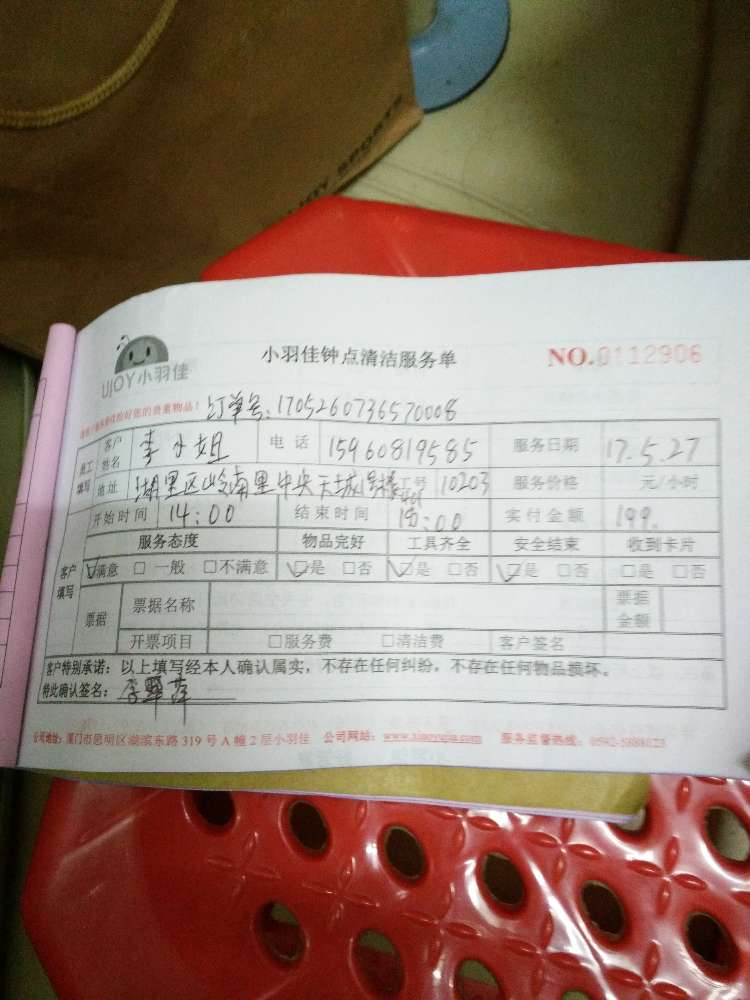 UJOY小羽佳
小羽佳钟点清洁服务单
NO.0112906
订单号:1705260736570008
员工填写 客户姓名 李小姐 电话 15960819585 服务日期 17.5.27
地址 湖里区岭南里中央天城 工号 10203 服务价格 元/小时
开始时间 14:00 结束时间 18:00 实付金额 199.
服务态度 物品完好 工具齐全 安全结束 收到卡片
客户填写 ☑满意 □一般 □不满意 ☑是 □否 ☑是 □否 ☑是 □否 □是 □否
票据 票据名称 票据金额
开票项目 □服务费 □清洁费 客户签名
客户特别承诺:以上填写经本人确认属实,不存在任何纠纷,不存在任何物品损坏。
特此确认签名:
公司地址:厦门市思明区湖滨东路 319 号 A 幢 2 层小羽佳 公司网站:www.xiaoyujia.com 服务监督热线: